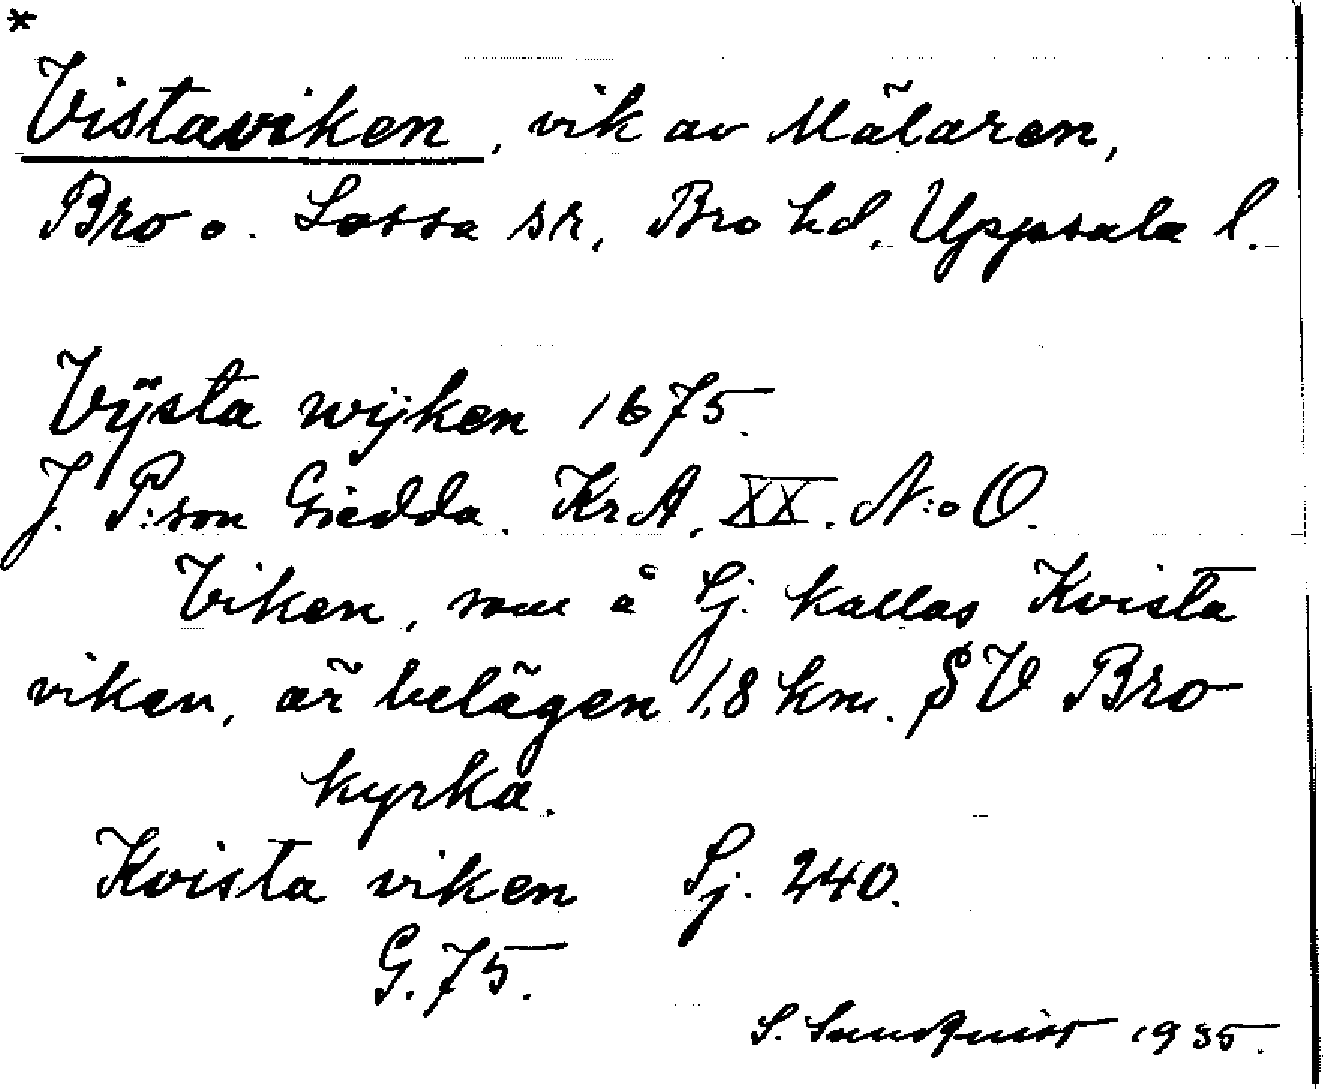 *
Vistaviken, vik av Mälaren,
Bro o. Lossa sr, Bro hd, Uppsala l.
Vÿsta wijken 1675.
J. P:son Giedda. KrA. XX. N:o O.
Viken, som å Sj. kallas Kvista
viken, är belägen 1,8 km. SV Bro
kyrka.
Kvista viken Sj. 240.
G. 75.
S. Sundquist 1935.